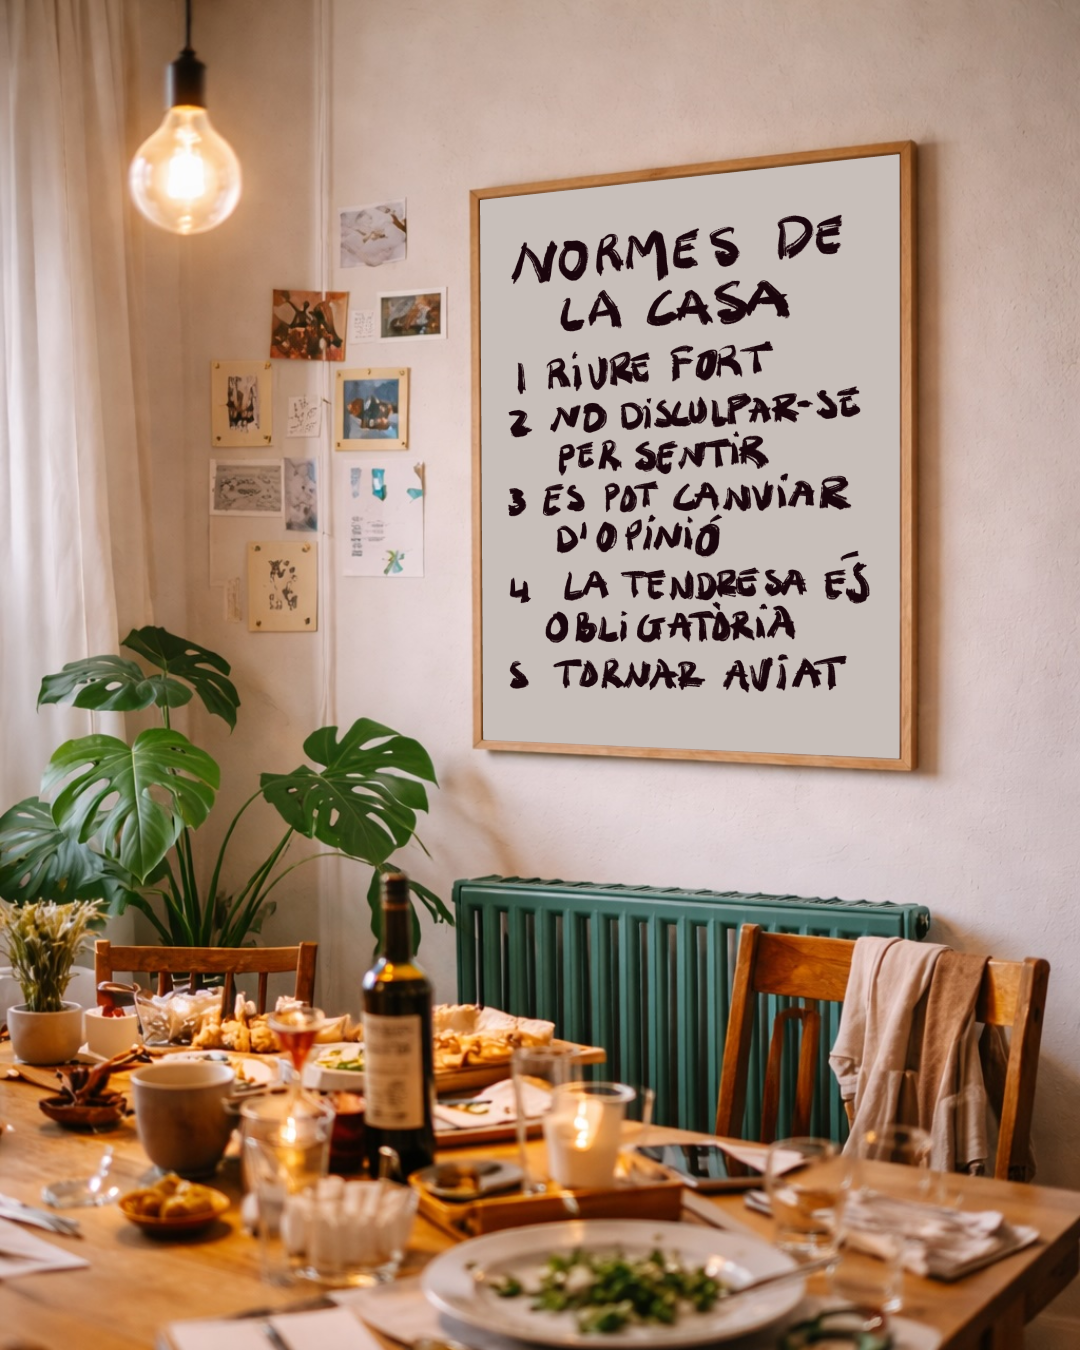 NORMES DE
LA CASA
1 RiURE FORT
2 NO DiSCULPAR-SE
PER SENTiR
3 ES POT CANViAR
D'OPiNiÓ
4 LA TENDRESA ÉS
OBLiGATÒRiA
5 TORNAR AViAT